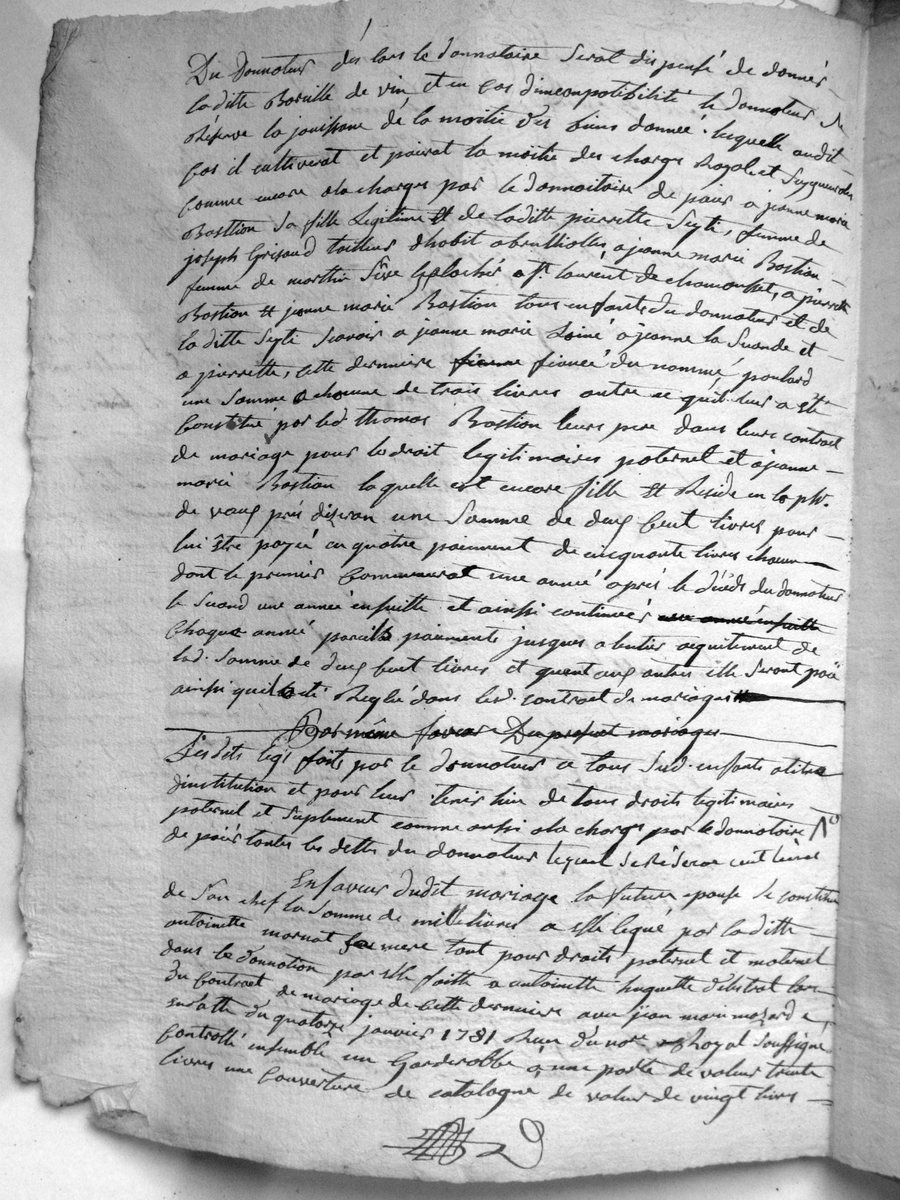 Du Donnateur dés lors le donnataire serat dispensé de donner
laditte Baraille de vin et en cas d'incompatibilité le donnateur se
Réserve la jouissance de la moitié des biens donnée. lequelle audit
cas il cultiverat et païrat la moitie des charges Royales et Seigneuriales
comme encore a la charges par le donnaitaire de païer a jeanne marie
Bastion sa fille Legitime et de laditte pierrette Seyte, femme de
joseph Grisaud tailleur d'habit a brullioles, a jeanne marie Bastion
femme de marthin à St laurent de chamousset, a pierrette
Bastion et jeanne marie Bastion tous enfants du donnateur et de
la ditte Seyte Scavoir a jeanne marie Lainé a jeanne la Seconde et
a pierrette, cette derniere fiancée du nommé poulard
une somme a chacune de trois livres outre ce qu'il leur a été
Constitué par led. thomas Bastion leurs pere dans leurs contrat
de mariage pour le droit legitimaires paternel et a jeanne
marie Bastion laquelle est encore fille et Réside en la psse.
de vaug prés diseran une somme de deug cent livres pour
lui être payé en quatre paiement de cincquante livres chacun
dont le premier commencerat une année aprés le décéds du donnateur
le Second une année ensuitte et ainssi continuer une année ensuitte
chaque année pareils paiements jusques a entier acquitement de
lad. somme de deug cent livres et quant aug autres elle seront païé
ainssi quil a été Reglé dans led. contract de mariages
Par même faveur Du present mariage
Lesdits legs faits par le donnateur a tous Sesd. enfants a titre
d'institution et pour leur tenir lieu de tous droits legitimaires
paternel et suplement comme aussi a la charges par le donnataire
de païer toutes les dettes du donnateur lequel se Réserve cent livres
En faveur dudit mariage la future epouse se constitue
de son chef la somme de mille livres a elle legué par laditte
antoinette marnat sa mere tant pour droits paternel et maternel
dans la donnation par elle faitte a antoinette huguette lors
du contract de mariage de cette derniere avec jean marie mazard
suivant du quatorze janvier 1781 Reçu d'u nore Royal soussigné
Controllé ensemble un Garderobbe a une porte de valeur trente
livres une couverture de catalogne de valeur de vingt livres